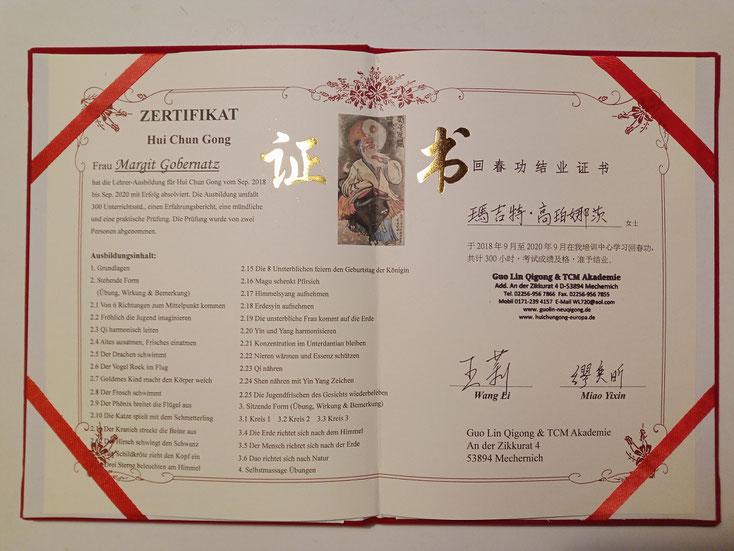 ZERTIFIKAT
Hui Chun Gong
Frau Margit Gobernatz
hat die Lehrer-Ausbildung für Hui Chun Gong vom Sep. 2018
bis Sep. 2020 mit Erfolg absolviert. Die Ausbildung umfaßt
300 Unterrichtsstd., einen Erfahrungsbericht, eine mündliche
und eine praktische Prüfung. Die Prüfung wurde von zwei
Personen abgenommen.
Ausbildungsinhalt:
1. Grundlagen
2. Stehende Form
(Übung, Wirkung & Bemerkung)
2.1 Von 6 Richtungen zum Mittelpunkt kommen
2.2 Fröhlich die Jugend imaginieren
2.3 Qi harmonisch leiten
2.4 Altes ausatmen, Frisches einatmen
2.5 Der Drachen schwimmt
2.6 Der Vogel Rock im Flug
2.7 Goldenes Kind macht den Körper weich
2.8 Der Frosch schwimmt
2.9 Der Phönix breitet die Flügel aus
2.10 Die Katze spielt mit dem Schmetterling
Der Kranich streckt die Beine aus
Hirsch schwingt den Schwanz
Schildkröte zieht den Kopf ein
Drei Sterne beleuchten am Himmel
2.15 Die 8 Unsterblichen feiern den Geburtstag der Königin
2.16 Magu schenkt Pfirsich
2.17 Himmelsyang aufnehmen
2.18 Erdesyin aufnehmen
2.19 Die unsterbliche Frau kommt auf die Erde
2.20 Yin und Yang harmonisieren
2.21 Konzentration im Unterdantian bleiben
2.22 Nieren wärmen und Essenz schätzen
2.23 Qi nähren
2.24 Shen nähren mit Yin Yang Zeichen
2.25 Die Jugendfrischen des Gesichts wiederbeleben
3. Sitzende Form (Übung, Wirkung & Bemerkung)
3.1 Kreis 1 3.2 Kreis 2 3.3 Kreis 3
3.4 Die Erde richtet sich nach dem Himmel
3.5 Der Mensch richtet sich nach der Erde
3.6 Dao richtet sich nach Natur
4. Selbstmassage Übungen
证书
回春功结业证书
瑪吉特·高珀娜茨 女士
于2018年9月至2020年9月在我培训中心学习回春功,
共计300小时,考试成绩及格,准予结业。
Guo Lin Qigong & TCM Akademie
Add. An der Zikkurat 4 D-53894 Mechernich
Tel. 02256-956 7866 Fax. 02256-956 7855
Mobil 0171-239 4157 E-Mail WL720@aol.com
www.guolin-neuqigong.de
www.huichungong-europa.de
王莉 缪奕昕
Wang Ei Miao Yixin
Guo Lin Qigong & TCM Akademie
An der Zikkurat 4
53894 Mechernich